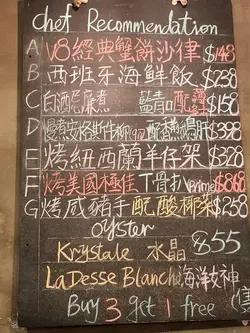 Chef Recommendation
A V8經典蟹餅沙律 $148
B 西班牙海鮮飯 $238
C 白酒忌廉煮 藍青口配薯 $158
D 慢煮安格斯牛柳 配香煎鵝肝 $398
E 烤紐西蘭羊仔架 $328
F 烤美國極佳T骨扒(Prime) $868
G 烤咸豬手配酸椰菜 $258
Oyster
Krystale 水晶 $55
LaDesse Blanche 海洋女神
Buy 3 get 1 free